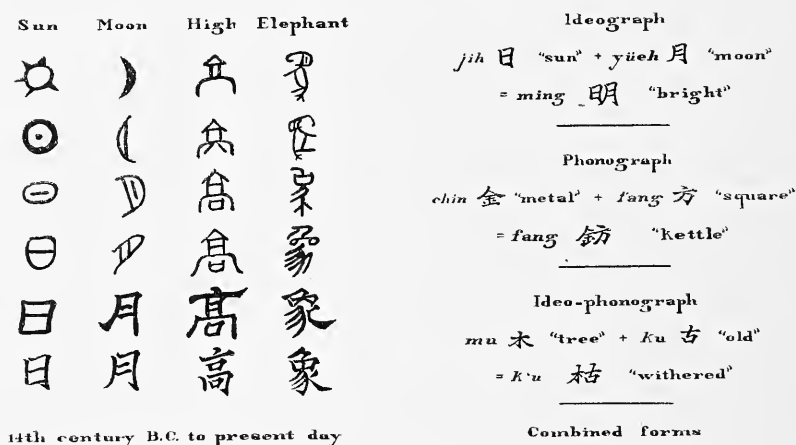 Sun Moon High Elephant
日 月 髙 象
日 月 高 象
14th century B.C. to present day
Ideograph
jih 日 "sun" + yüeh 月 "moon"
= ming 明 "bright"
Phonograph
chin 金 "metal" + fang 方 "square"
= fang 鈁 "kettle"
Ideo-phonograph
mu 木 "tree" + ku 古 "old"
= k'u 枯 "withered"
Combined forms